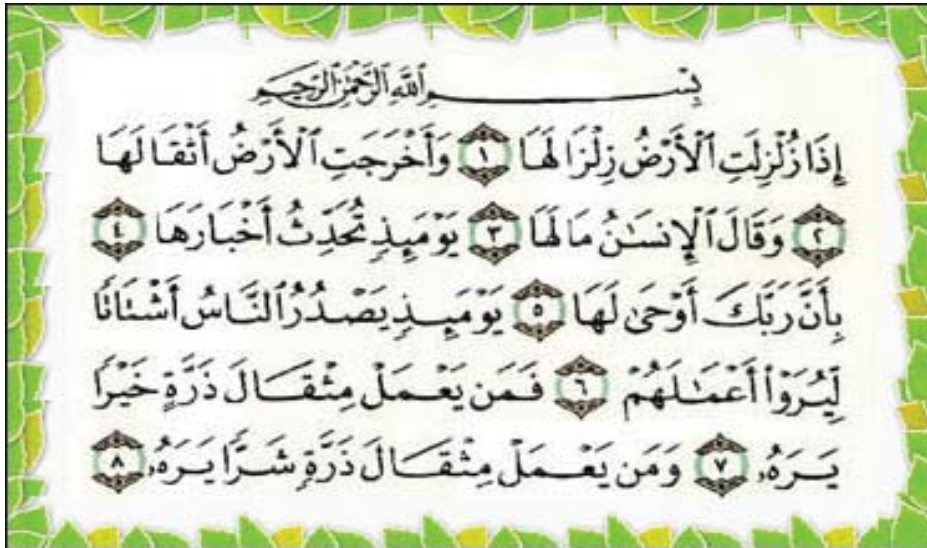 بِسْمِ اللَّهِ الرَّحْمَٰنِ الرَّحِيمِ
إِذَا زُلْزِلَتِ ٱلْأَرْضُ زِلْزَالَهَا ١ وَأَخْرَجَتِ ٱلْأَرْضُ أَثْقَالَهَا
٢ وَقَالَ ٱلْإِنسَٰنُ مَا لَهَا ٣ يَوْمَئِذٍ تُحَدِّثُ أَخْبَارَهَا ٤
بِأَنَّ رَبَّكَ أَوْحَىٰ لَهَا ٥ يَوْمَئِذٍ يَصْدُرُ ٱلنَّاسُ أَشْتَاتًا
لِّيُرَوْا۟ أَعْمَٰلَهُمْ ٦ فَمَن يَعْمَلْ مِثْقَالَ ذَرَّةٍ خَيْرًا
يَرَهُۥ ٧ وَمَن يَعْمَلْ مِثْقَالَ ذَرَّةٍ شَرًّا يَرَهُۥ ٨